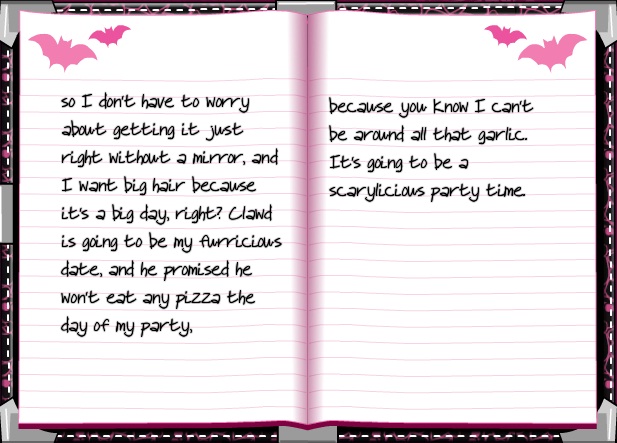 so I don't have to worry
about getting it just
right without a mirror, and
I want big hair because
it's a big day, right? Clawd
is going to be my furricious
date, and he promised he
won't eat any pizza the
day of my party,
because you know I can't
be around all that garlic.
It's going to be a
scarylicious party time.